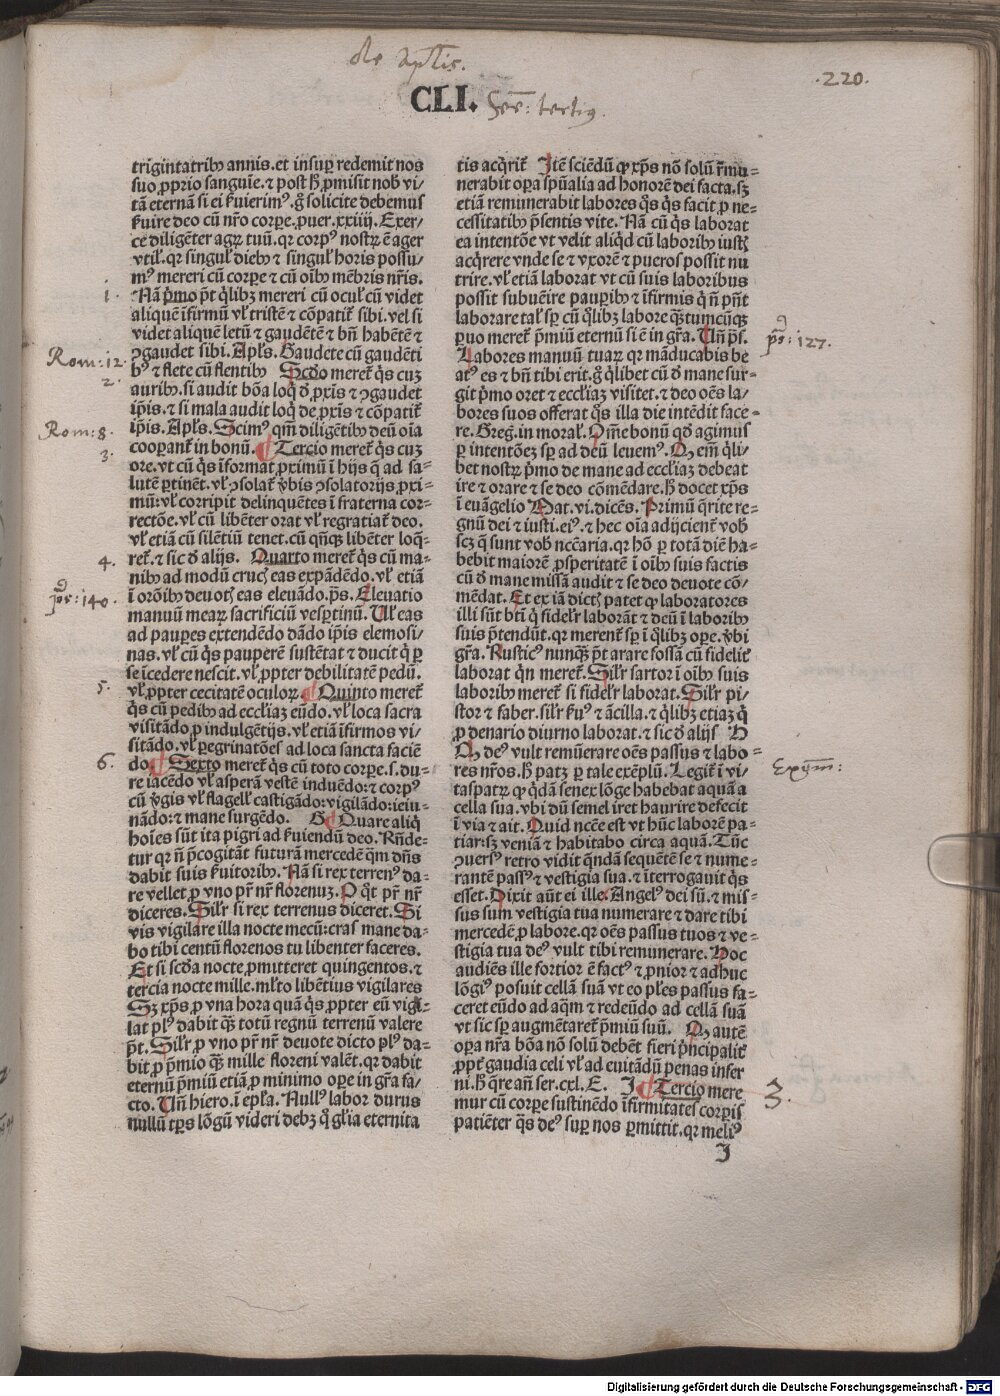 de aplis.
.220.
CLI. Ser: tertius.
trigintatribꝰ annis. et insuꝑ redemit nos
suo ꝓprio sanguīe. ⁊ post hͦ ꝓmisit nob̄ vi/
tā eternā si ei ẜuierimꝰ. g̊ solicite debemus
ẜuire deo cū nr̄o corꝑe. ꝓuer. xxiiij. Exer/
ce diligēter agrꝝ tuū. qꝛ corpꝰ nostꝝ ē ager
vtil̓. qꝛ singul̓ diebꝰ ⁊ singul̓ horis possu/
mꝰ mereri cū corꝑe ⁊ cū oībꝰ mēbris nr̄is.
1. Nā p̄mo pōt q̇libꝫ mereri cū ocul̓ cū videt
aliquē īfirmū vl̓ tristē ⁊ cōpatit̄ sibi. vel si
videt aliquē letū ⁊ gaudētē ⁊ bn̄ habētē ⁊
Rom: 12. ꝯgaudet sibi. Apl̓s. Gaudete cū gaudēti
2. bꝰ ⁊ flete cū flentibꝰ Scd̓o meret̄ q̇s cuꝫ
auribꝰ. si audit bōa loq̇ d̓ ꝓxīs ⁊ ꝯgaudet
ip̄is. ⁊ si mala audit loq̇ de ꝓxīs ⁊ cōpatit̄
Rom: 8. ip̄is. Apl̓s. Scimꝰ qm̄ diligētibꝰ deū oīa
3. cooꝑant̄ in bonū. Tercio meret̄ q̇s cuꝫ
ore. vt cū q̇s īformat ꝓximū ī hijs q̄ ad sa/
lutē ꝑtinēt. vl̓ ꝯsolat̄ v̓bis ꝯsolatorijs ꝓxi/
mū: vl̓ corripit delinquētes ī fraterna cor-
rectōe. vl̓ cū libēter orat vl̓ regratiat̄ deo.
vl̓ etiā cū silētiū tenet. cū qn̄qꝫ libēter loq̄-
4. ret̄. ⁊ sic d̓ alijs. Quarto meret̄ q̇s cū ma-
nibꝰ ad modū cruc̄ eas expādēdo. vl̓ etiā
ps: 140. ī orōibꝰ deuot̄ eas eleuādo. p̄s. Eleuatio
manuū meaꝝ sacrificiū vesꝑtinū. Vl̓ eas
ad pauꝑes extendēdo dādo ip̄is elemosi/
nas. vl̓ cū q̇s pauꝑē sustētat ⁊ ducit q̇ ꝑ
se īcedere nescit. vl̓ ꝓpter debilitatē pedū.
5. vl̓ ꝓpter cecitatē oculoꝝ. Quinto meret̄
q̇s cū pedibꝰ ad eccl̓iaꝫ eūdo. vl̓ loca sacra
visitādo ꝓ indulgētijs. vl̓ etiā īfirmos vi/
sitādo. vl̓ ꝑegrinatōes ad loca sancta faciē
6. do. Sexto meret̄ q̇s cū toto corꝑe. s. du-
re iacēdo vl̓ asperā vestē induēdo: ⁊ corpꝰ
cū v̓gis vl̓ flagell̓ castigādo: vigilādo: ieiu-
nādo: ⁊ mane surgēdo. G Quare aliq̇
hoīes sūt ita pigri ad ẜuiendū deo. Rn̄de-
tur qꝛ n̄ p̄cogitāt futurā mercedē q̄m dn̄s
dabit suis ẜuitoribꝰ. Nā si rex terrenꝰ da-
re vellet ꝓ vno pr̄ nr̄ florenuꝫ. O q̇t pr̄ nr̄
diceres. Sil̓r si rex terrenus diceret. Si
vis vigilare illa nocte mecū: cras mane da-
bo tibi centū florenos tu libenter faceres.
Et si scd̓a nocte ꝓmitteret quingentos. ⁊
tercia nocte mille. ml̓to libētius vigilares
Sꝫ xp̄s ꝓ vna hora quā q̇s ꝓpter eū vigi-
lat plꝰ dabit qꝫ totū regnū terrenū valere
pōt. Sil̓r ꝓ vno pr̄ nr̄ deuote dicto plꝰ da-
bit ꝓ p̄mio qꝫ mille floreni valēt. qꝛ dabit
eternū p̄miū etiā ꝓ minimo oꝑe in gr̄a fa/
cto. Vn̄ hiero. ī epl̓a. Nullꝰ labor durus
nullū tp̄s lōgū videri debꝫ q̇ gl̓ia eternita
tis acq̇rit̄ Itē sciēdū ꝙ xp̄s nō solū r̄mu-
nerabit oꝑa spūalia ad honorē dei facta. sꝫ
etiā remunerabit labores q̇s q̇s facit ꝓ ne-
cessitatibꝰ p̄sentis vite. Nā cū q̇s laborat
ea intentōe vt velit aliq̇d cū laboribꝰ iust̄
acq̇rere vnde se ⁊ vxorē ⁊ pueros possit nu
trire. vl̓ etiā laborat vt cū suis laboribus
possit subuēire pauꝑibꝰ ⁊ īfirmis q̇ n̄ pn̄t
laborare tal̓ sꝑ cū q̇libꝫ labore qꝫtumcūqꝫ
ꝑuo meret̄ p̄miū eternū si ē in gr̄a. Vn̄ p̄s. ps: 127.
Labores manuū tuaꝝ qꝛ māducabis be
atꝰ es ⁊ bn̄ tibi erit. g̊ q̇libet cū d̓ mane sur-
git p̄mo oret ⁊ eccl̓iaꝫ visitet. ⁊ deo oēs la/
bores suos offerat q̇s illa die intēdit face-
re. Greg. in moral̓. Om̄e bonū qd̓ agimus
ꝑ intentōeꝫ sꝑ ad deū leuemꝰ. Q em̄ q̇li-
bet nostꝝ p̄mo de mane ad eccl̓iaꝫ debeat
ire ⁊ orare ⁊ se deo cōmēdare. hͦ docet xp̄s
ī euāgelio Mat. vi. dicēs. Primū q̄rite re-
gnū dei ⁊ iusti. eiꝰ. ⁊ hec oīa adijcient̄ vob̄
scꝫ q̄ sunt vob̄ nc̄caria. qꝛ hō ꝑ totā diē ha-
bebit maiorē ꝓsperitatē ī oībꝰ suis factis
cū d̓ mane missā audit ⁊ se deo deuote cō/
mēdat. Et ex iā dict̄ patet ꝙ laboratores
illi sūt bt̄i q̇ fidel̓r laborāt ⁊ deū ī laboribꝰ
suis p̄tendūt. qꝛ merent̄ sꝑ ī q̇libꝫ oꝑe. v̓bi
gr̄a. Rusticꝰ nunqꝫ pōt arare fossā cū fidelit̄
laborat q̇n meret̄. Sil̓r sartor ī oībꝰ suis
laboribꝰ meret̄ si fidel̓r laborat. Sil̓r pi/
stor ⁊ faber. sil̓r ẜuꝰ ⁊ ācilla. ⁊ q̇libꝫ etiaꝫ q̇
ꝓ denario diurno laborat. ⁊ sic d̓ alijs H
Q deꝰ vult remūerare oēs passus ⁊ labo-
res nr̄os. hͦ patꝫ ꝑ tale exēplū. Legit̄ ī vi/ Exm̄:
taspatꝝ ꝙ q̇dā senex lōge habebat aquā a
cella sua. vbi dū semel iret haurire defecit
ī via ⁊ ait. Quid nc̄ce est vt hūc laborē pa-
tiar: sꝫ veniā ⁊ habitabo circa aquā. Tūc
ꝯuersꝰ retro vidit quēdā sequētē se ⁊ nume-
rantē passꝰ ⁊ vestigia sua. ⁊ īterrogauit q̇s
esset. Dixit aūt ei ille. Angelꝰ dei sū. ⁊ mis-
sus sum vestigia tua numerare ⁊ dare tibi
mercedē ꝓ labore. qꝛ oēs passus tuos ⁊ ve-
stigia tua deꝰ vult tibi remunerare. Hoc
audiēs ille fortior ē factꝰ ⁊ ꝓnior ⁊ adhuc
lōgiꝰ posuit cellā suā vt eo pl̓es passus fa-
ceret eūdo ad aq̄m ⁊ redeūdo ad cellā suā
vt sic sꝑ augmētaret̄ p̄miū suū. Q autē
oꝑa nr̄a bōa nō solū debēt fieri p̄ncipalit̄
ꝓpt̄ gaudia celi vl̓ ad euitādū penas infer
ni. hͦ q̄re añ ser. cxl. E. I Tercio mere 3.
mur cū corꝑe sustinēdo īfirmitates corꝑis
patiēter q̇s deꝰ suꝑ nos ꝑmittit. qꝛ meliꝰ
I
Digitalisierung gefördert durch die Deutsche Forschungsgemeinschaft - DFG